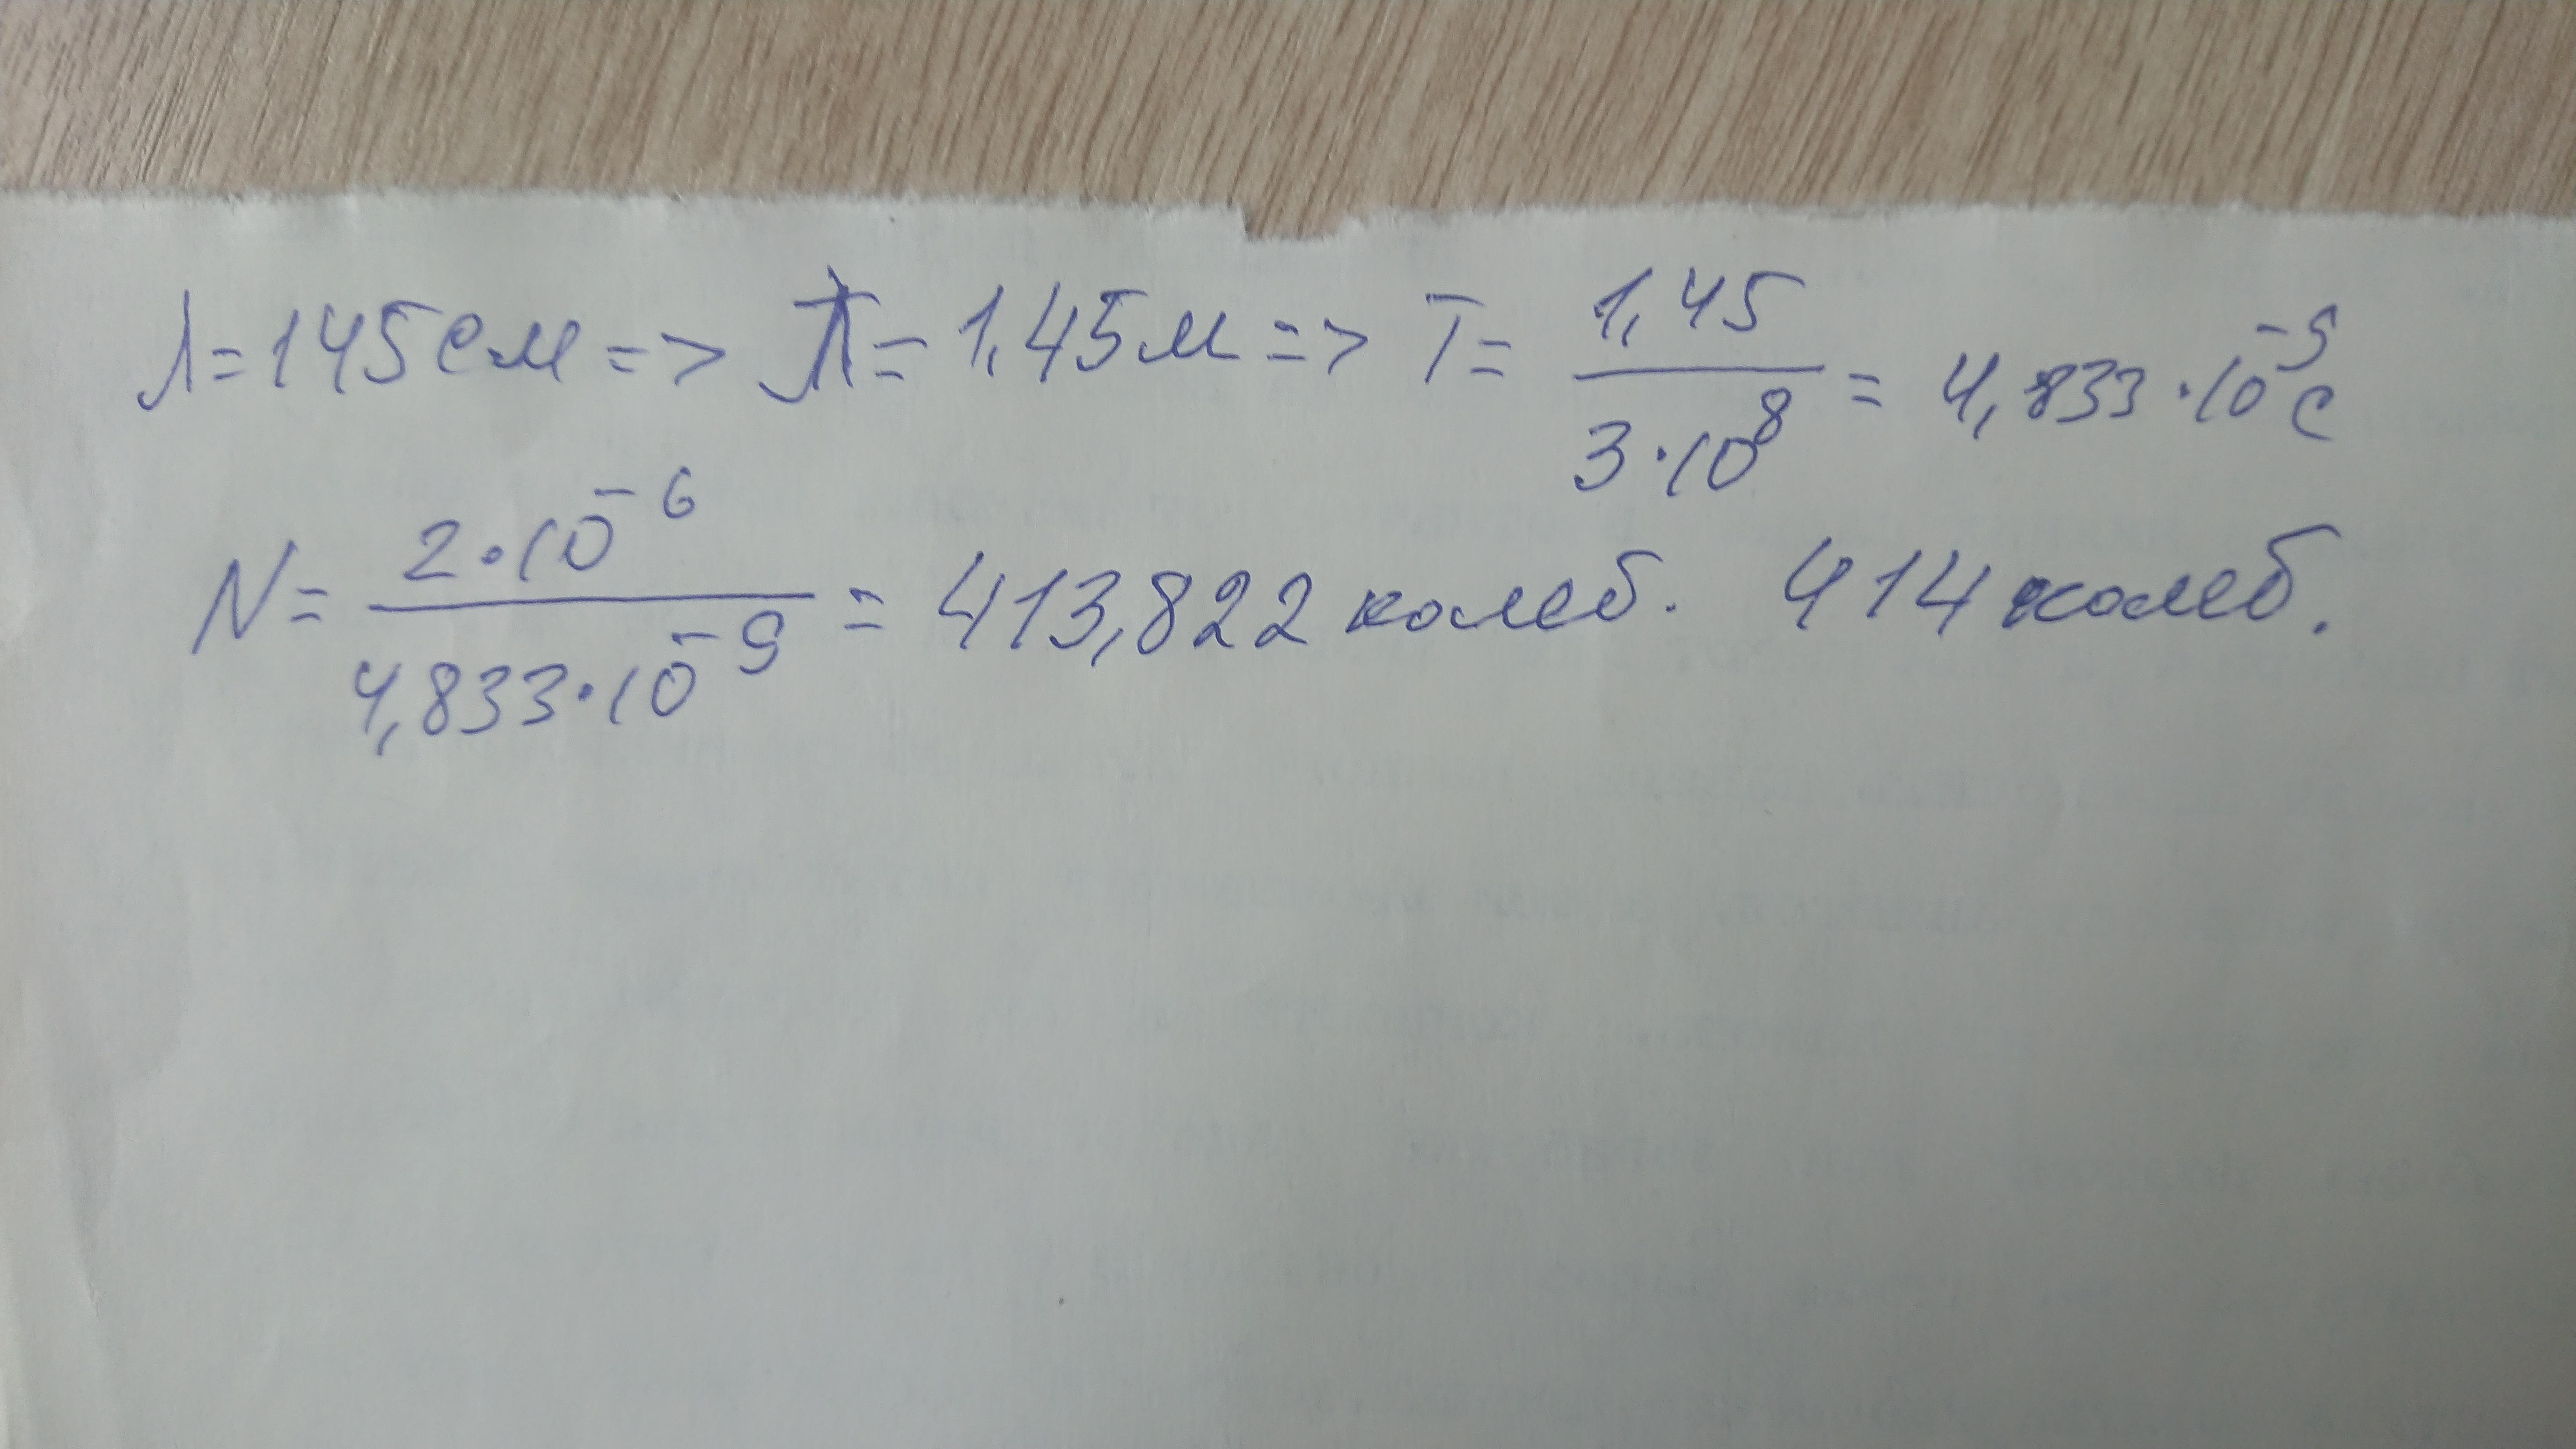 λ=145см => λ=1,45м => T= 1,45/3·10⁸ = 4,833·10⁻⁹с
N= 2·10⁻⁶/4,833·10⁻⁹ = 413,822 колеб. 414 колеб.